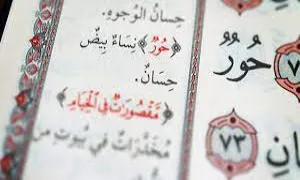 حِسَانُ الْوُجُوهِ.
﴿حُورٌ﴾ نِسَاءٌ بِيضٌ
حِسَانٌ.
﴿مَّقْصُورَٰتٌ فِي الْخِيَامِ﴾
مُخَدَّرَاتٌ فِي بُيُوتٍ مِنْ
حُورٌ
٧٣